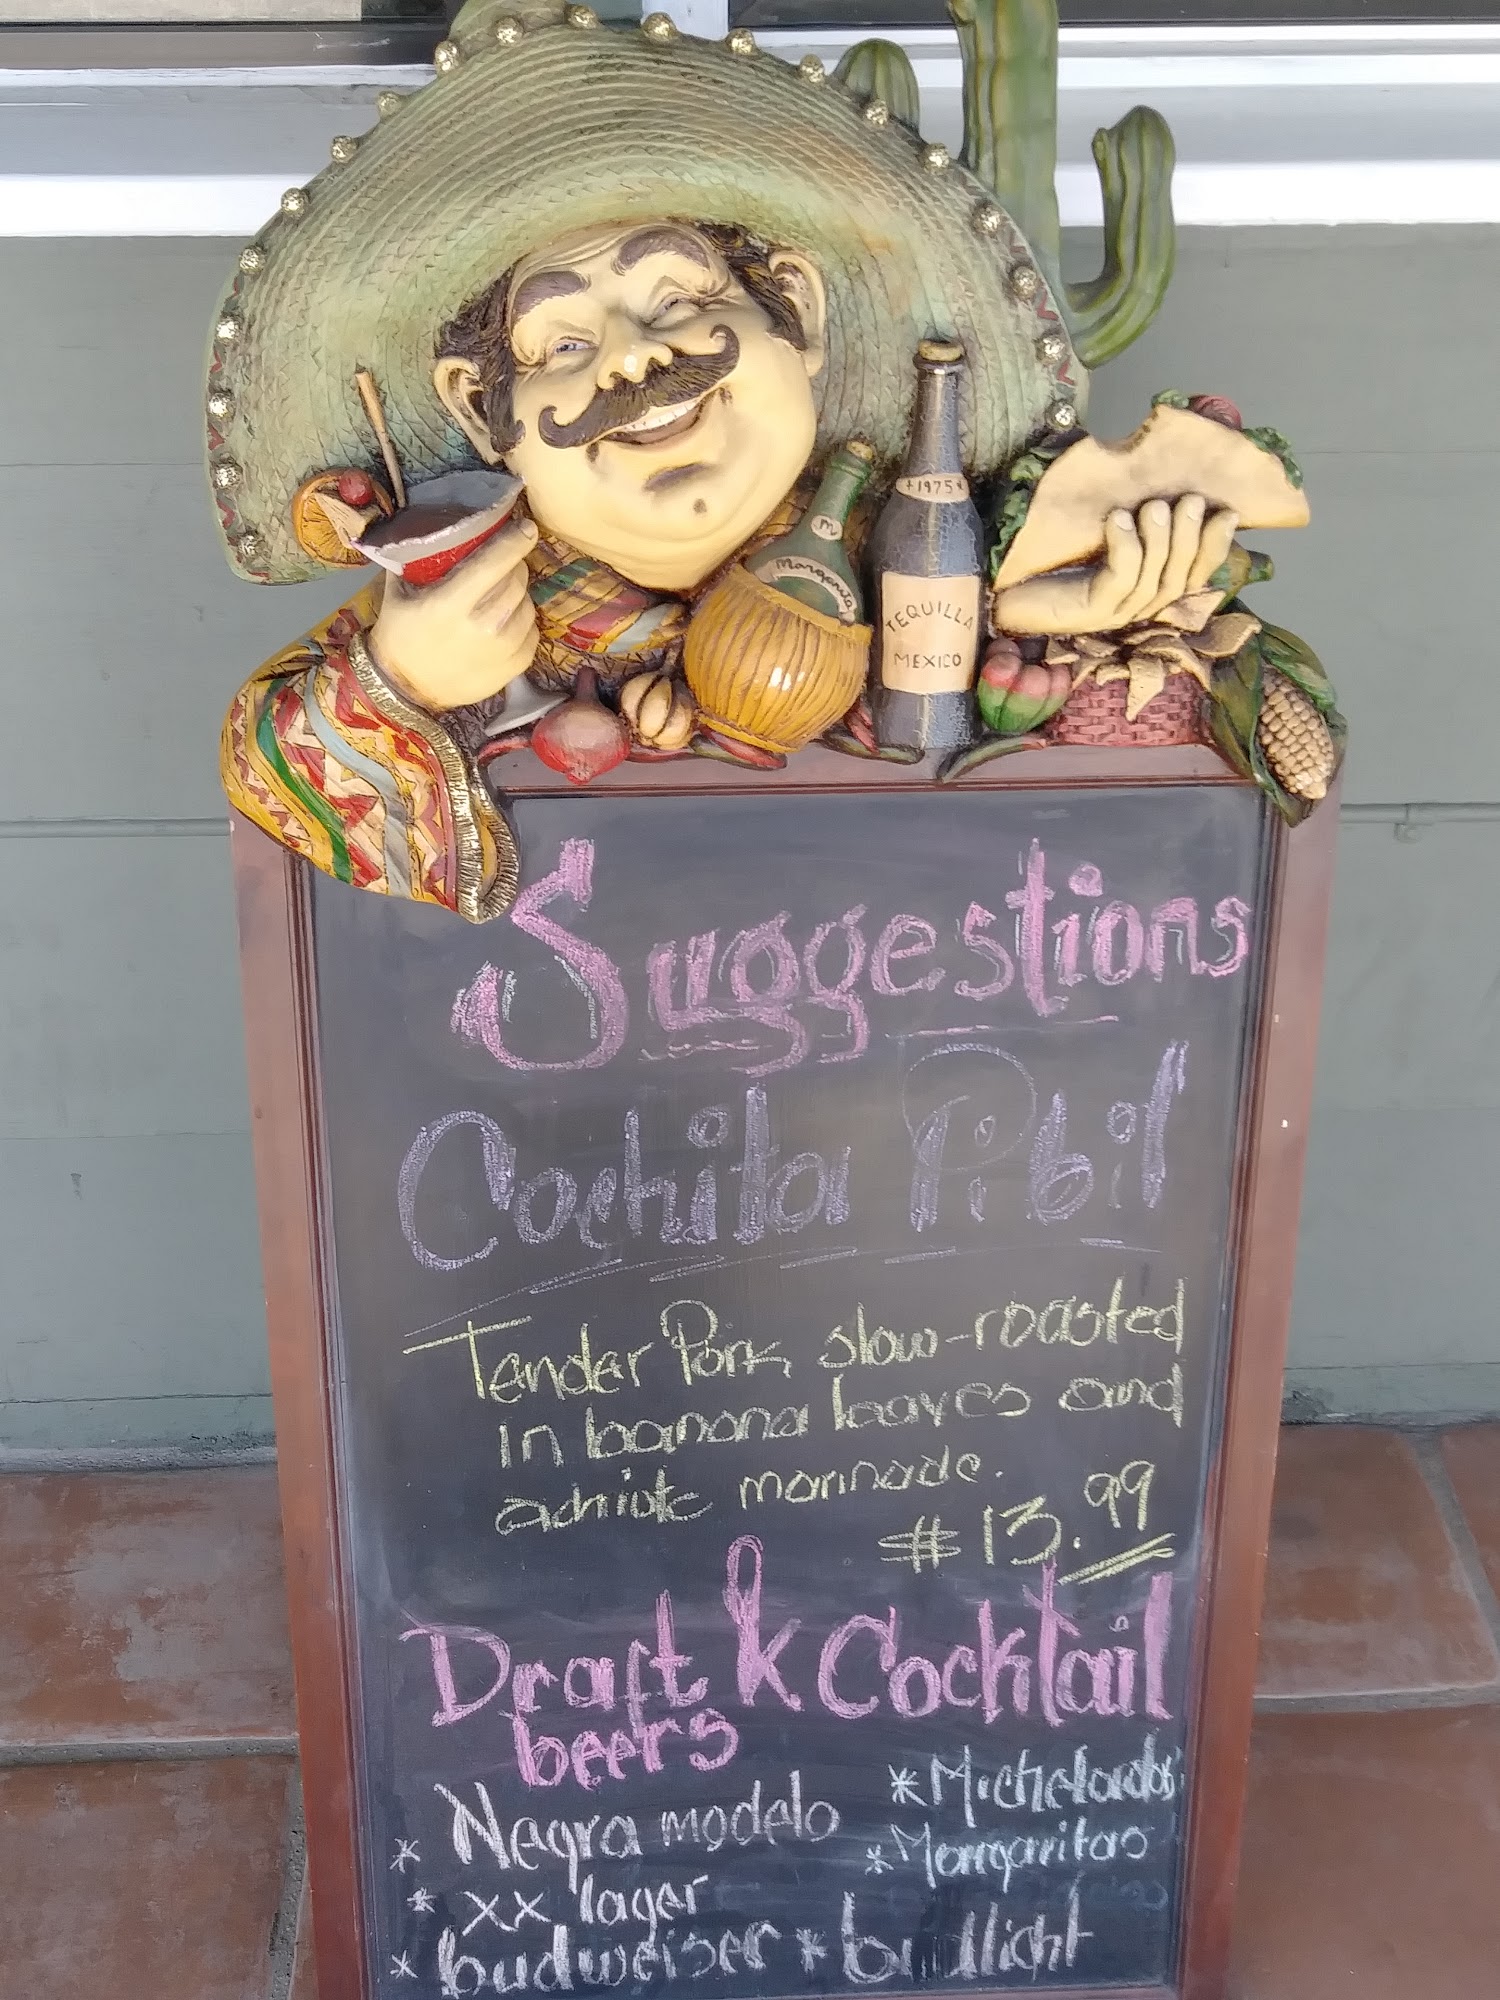 M
Margarita
*1975*
TEQUILLA
MEXICO
Suggestions
Cochita Pibil
Tender Pork slow-roasted
in banana leaves and
achiote marinade.
$13.99
Draft & Cocktail
beers
* Negra modelo
* xx lager
* budweiser * bud light
* Micheladas
* Margaritas